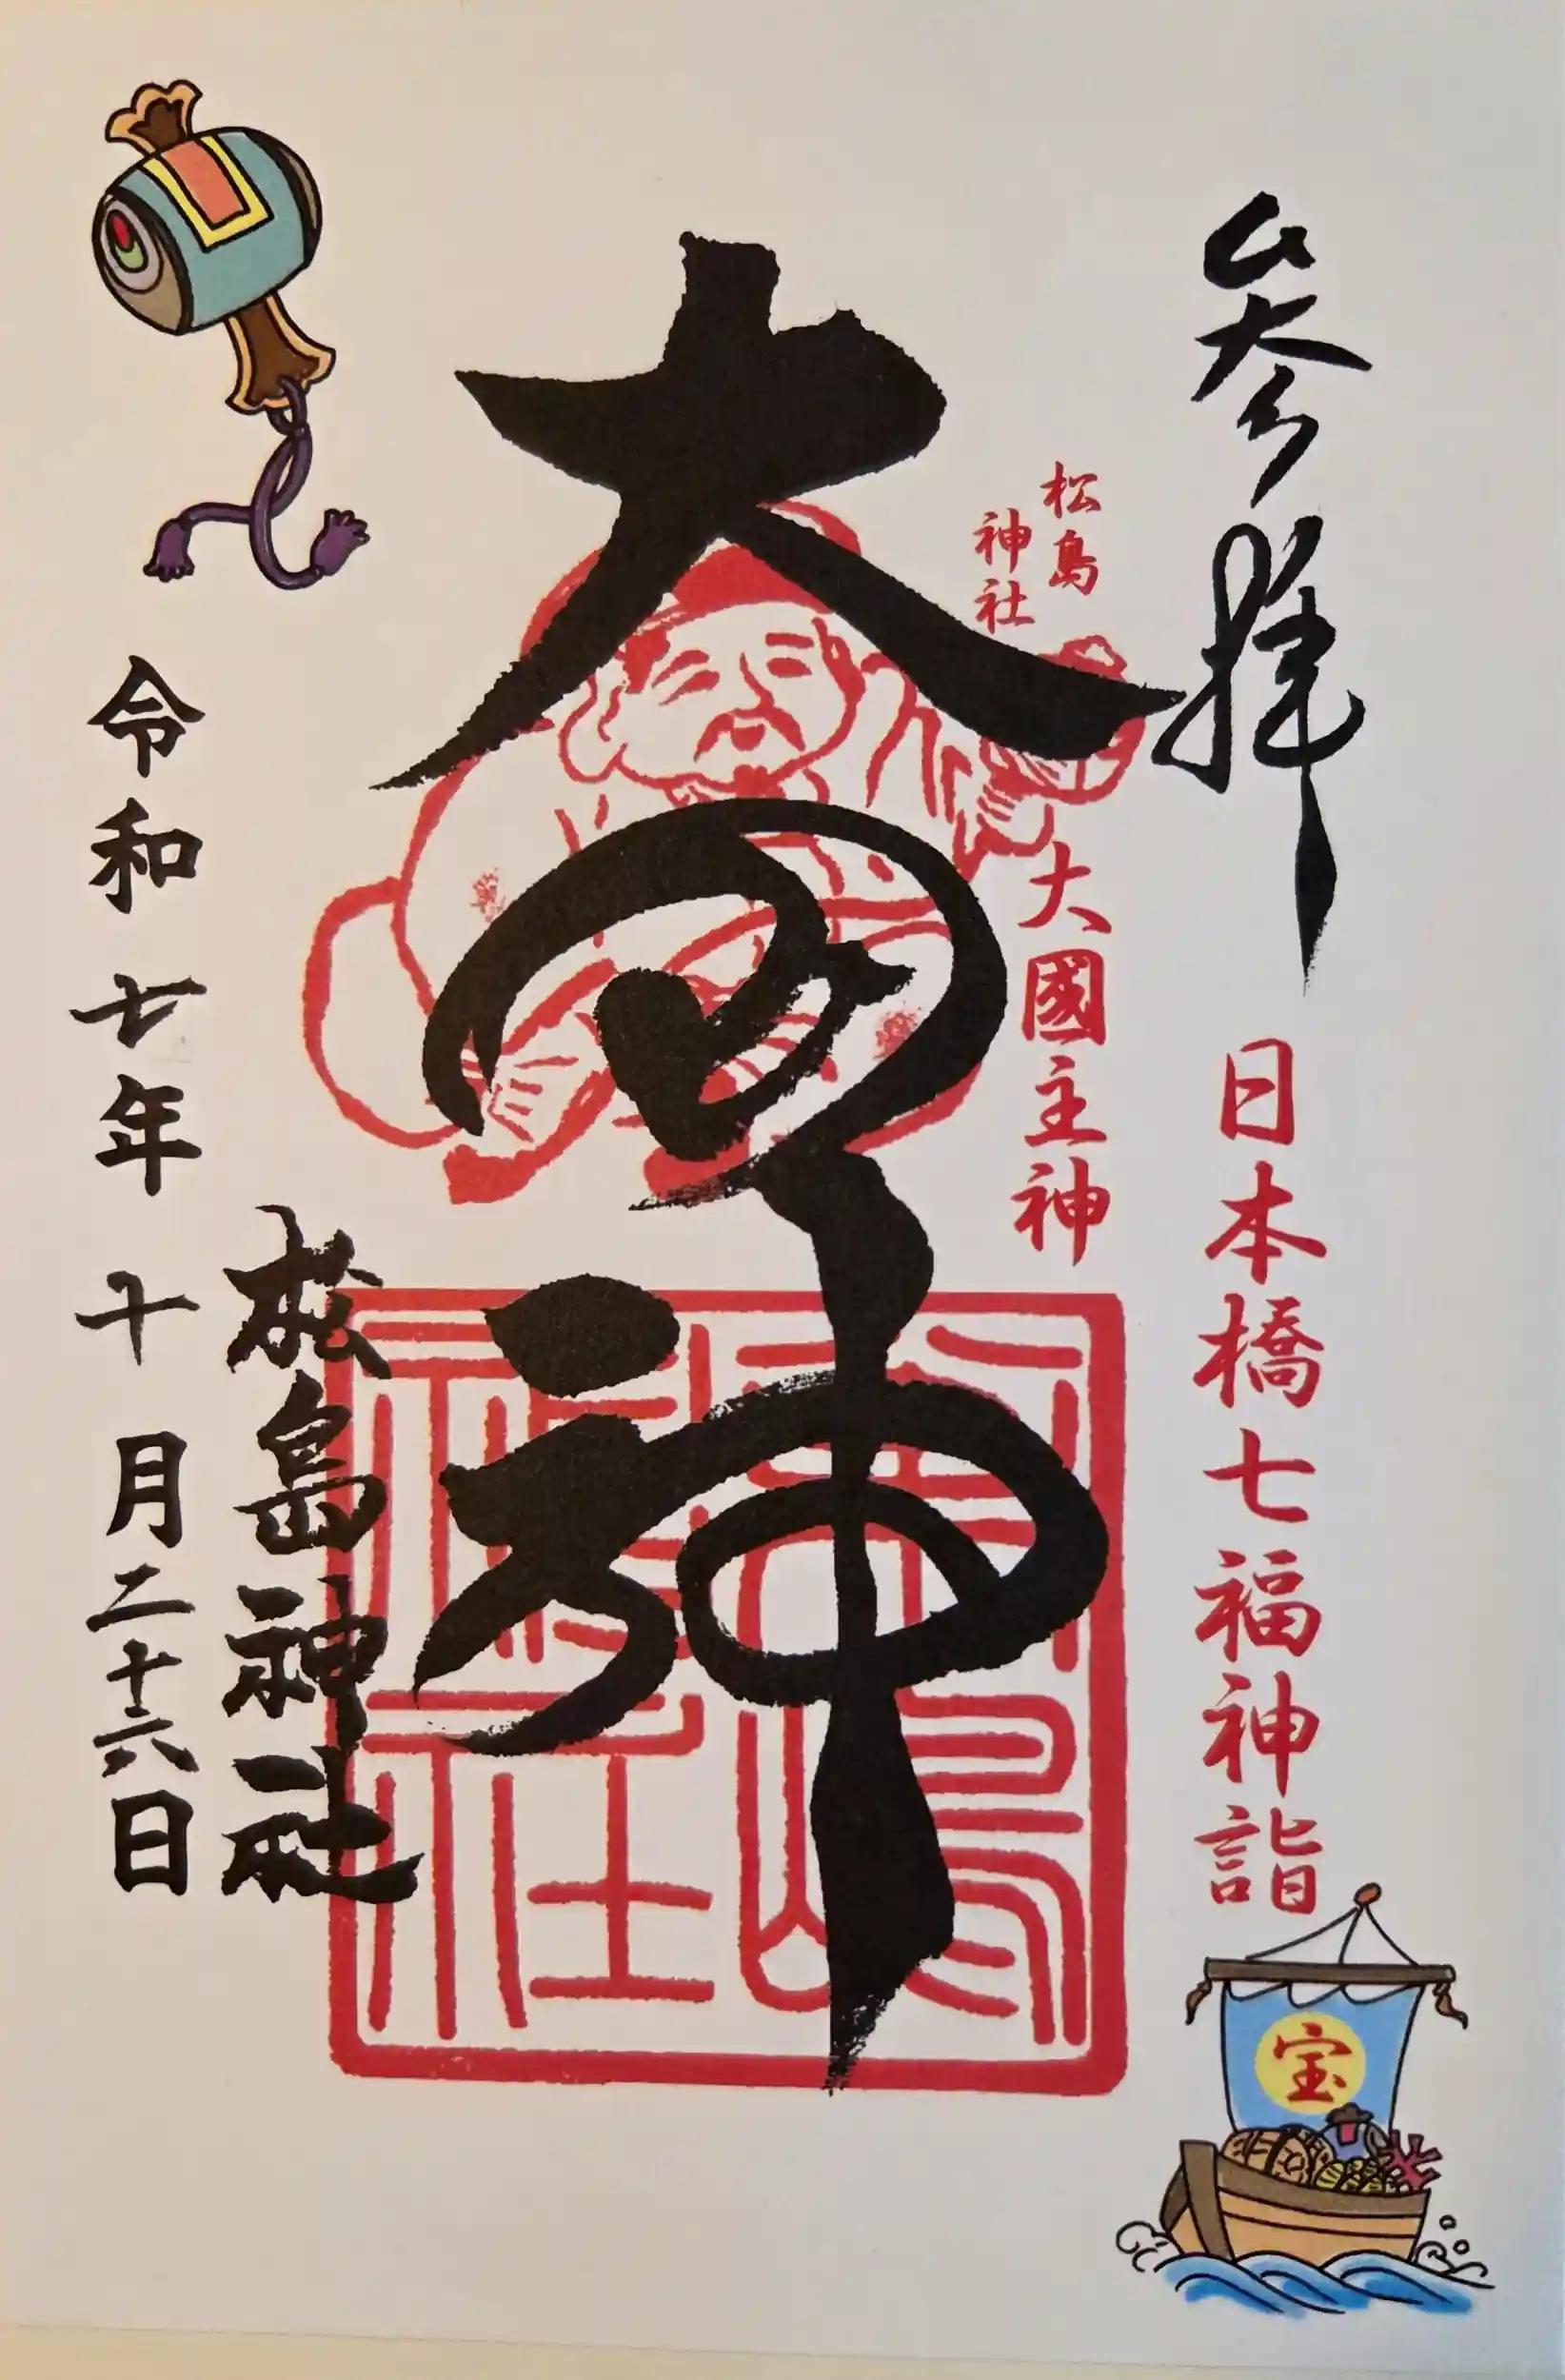 参拝
日本橋七福神詣
宝
松島
神社
大國主神
大国神
松島神社
令和七年十月二十六日